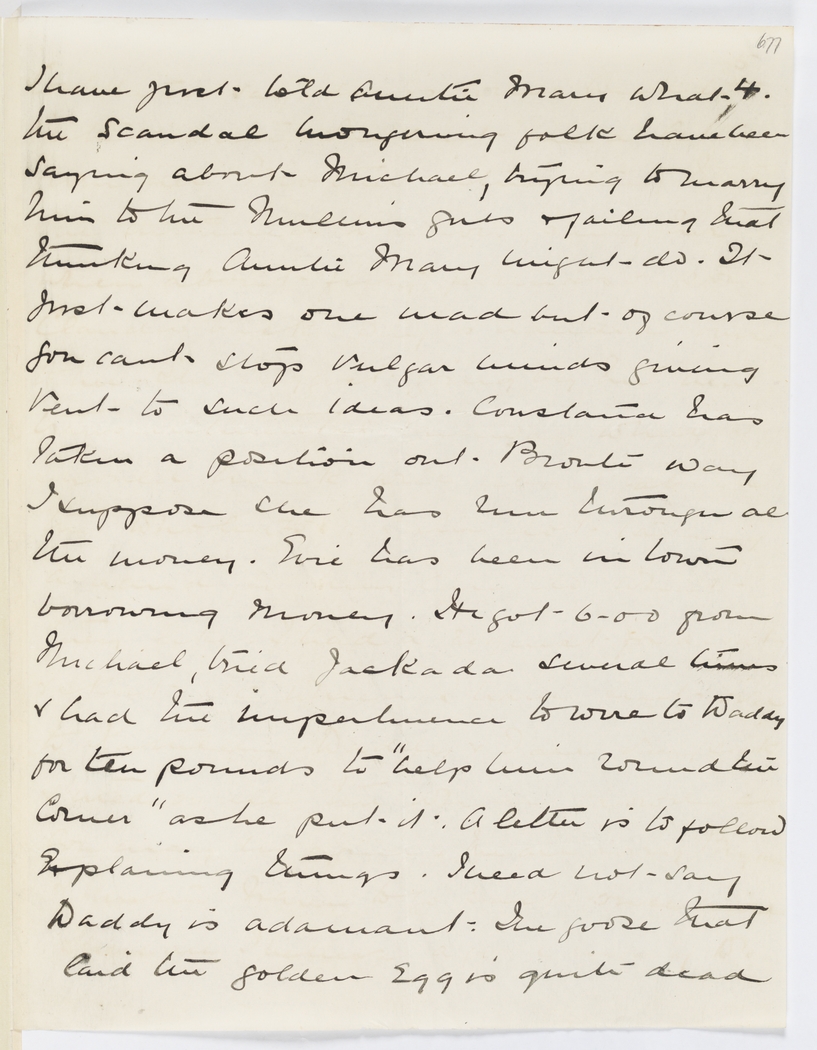 677
I have just told Auntie Mary what 4.
the scandal mongering folk have been
saying about Michael, trying to marry
him to the Mullins girls & failing that
thinking Auntie Mary might do. It
just makes one mad but of course
you cant stop vulgar minds giving
vent to such ideas. Constance has
taken a position out Bronte way
I suppose she has run through al
the money. Evie has been in town
borrowing money. He got 6-0-0 from
Michael, tried several times
& had the impertinence to wire to Daddy
for ten pounds to "help him round the
Corner" as he put it. A letter is to follow
Explaining things. I need not say
Daddy is adamant. The goose that
laid the golden Egg is quite dead